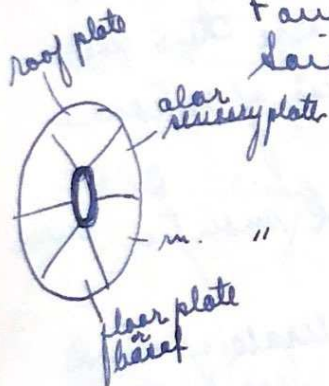 roof plate
alar
sensory plate
m. "
floor plate
or
basal